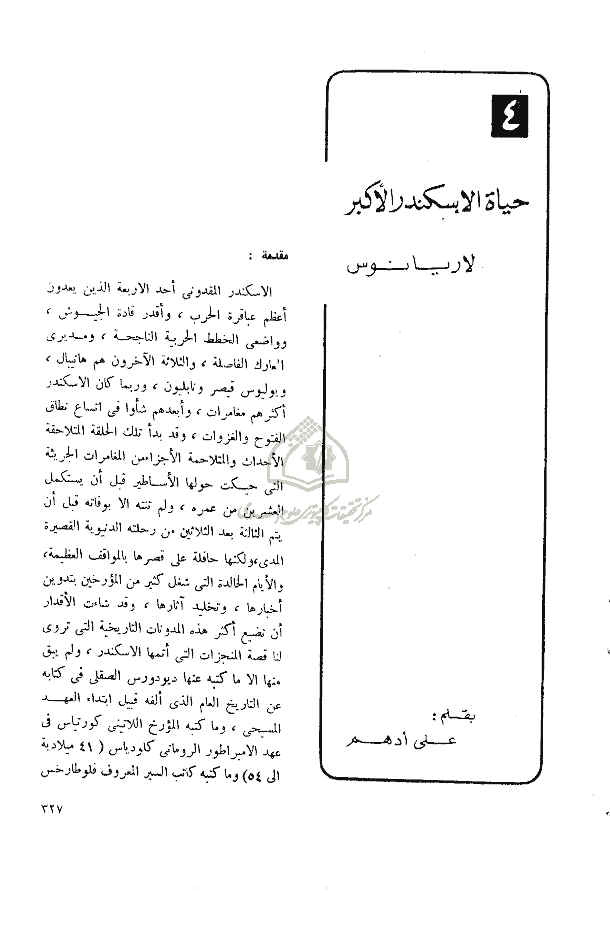 ٤
حياة الاسكندر الأكبر
لاريانوس
بقلم :
على أدهم
مقدمة :
الاسكندر المقدونى أحد الاربعة الذين يعدون
أعظم عباقرة الحرب ، وأقدر قادة الجيوش ،
وواضعى الخطط الحربية الناجحة ، ومديرى
المعارك الفاصلة ، والثلاثة الآخرون هم هانيبال ،
ويوليوس قيصر ونابليون ، وربما كان الاسكندر
أكثرهم مغامرات ، وأبعدهم شأوا فى اتساع نطاق
الفتوح والغزوات ، وقد بدأ تلك الحلقة المتلاحقة
الأحداث والمتلاحمة الأجزاء من المغامرات الجريئة
التى حيكت حولها الأساطير قبل أن يستكمل
العشرين من عمره ، ولم تنته الا بوفاته قبل أن
يتم الثالثة بعد الثلاثين من رحلته الدنيوية القصيرة
المدى ، ولكنها حافلة على قصرها بالمواقف العظيمة ،
والأيام الخالدة التى شغل كثير من المؤرخين بتدوين
أخبارها ، وتخليد آثارها ، وقد شاءت الأقدار
أن تضيع أكثر هذه المدونات التاريخية التى تروى
لنا قصة المنجزات التى أتمها الاسكندر ، ولم يبق
منها الا ما كتبه عنها ديودورس الصقلى فى كتابه
عن التاريخ العام الذى ألفه قبيل ابتداء العهد
المسيحى ، وما كتبه المؤرخ اللاتينى كورتياس فى
عهد الامبراطور الرومانى كلودياس ( ٤١ ميلادية
الى ٥٤) وما كتبه كاتب السير المعروف فلوطارخس
٣٢٧